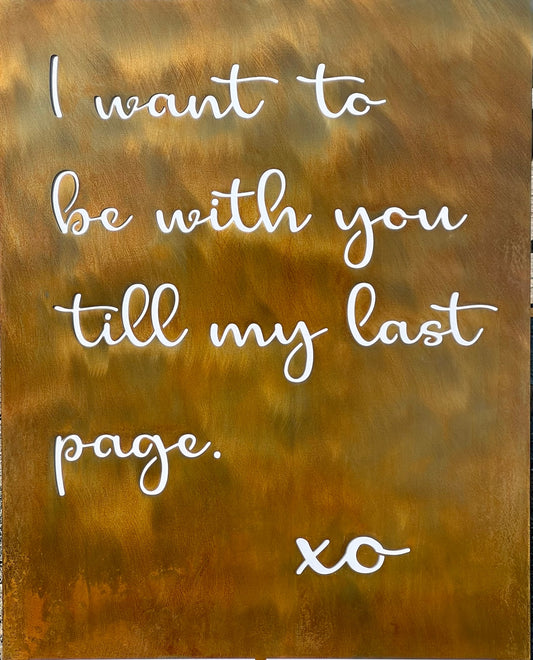 I want to
be with you
till my last
page.
xo